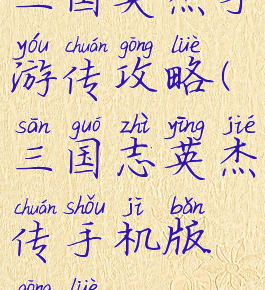 三国英杰手
yóu chuán gōng lüè
游传攻略(
sān guó zhì yīng jié
三国志英杰
chuán shǒu jī bǎn
传手机版
gōng lüè